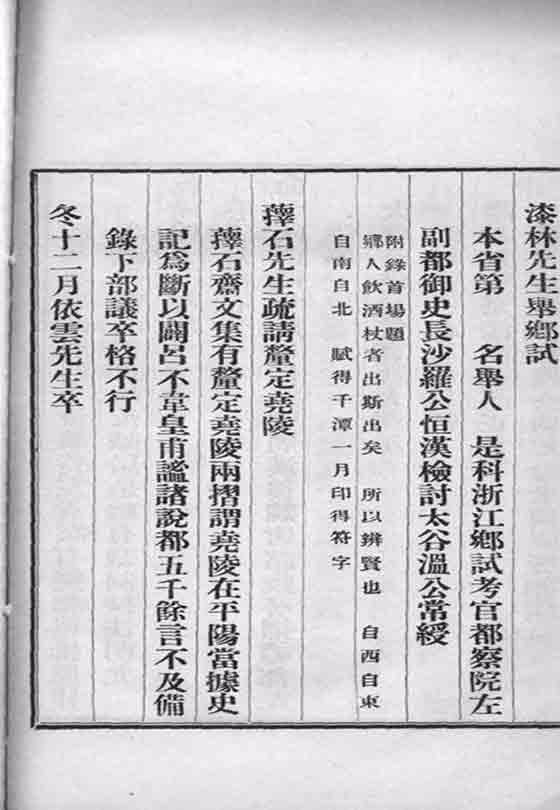 漆林先生舉鄉試
本省第 名舉人 是科浙江鄉試考官都察院左
副都御史長沙羅公恒漢檢討太谷溫公常綬
附錄首場題
鄉人飲酒杖者出斯出矣 所以辨賢也 自西自東
自南自北 賦得千潭一月印得符字
蘀石先生疏請釐定堯陵
蘀石齋文集有釐定堯陵兩摺謂堯陵在平陽當據史
記爲斷以闢呂不韋皇甫謐諸說都五千餘言不及備
錄下部議卒格不行
冬十二月依雲先生卒